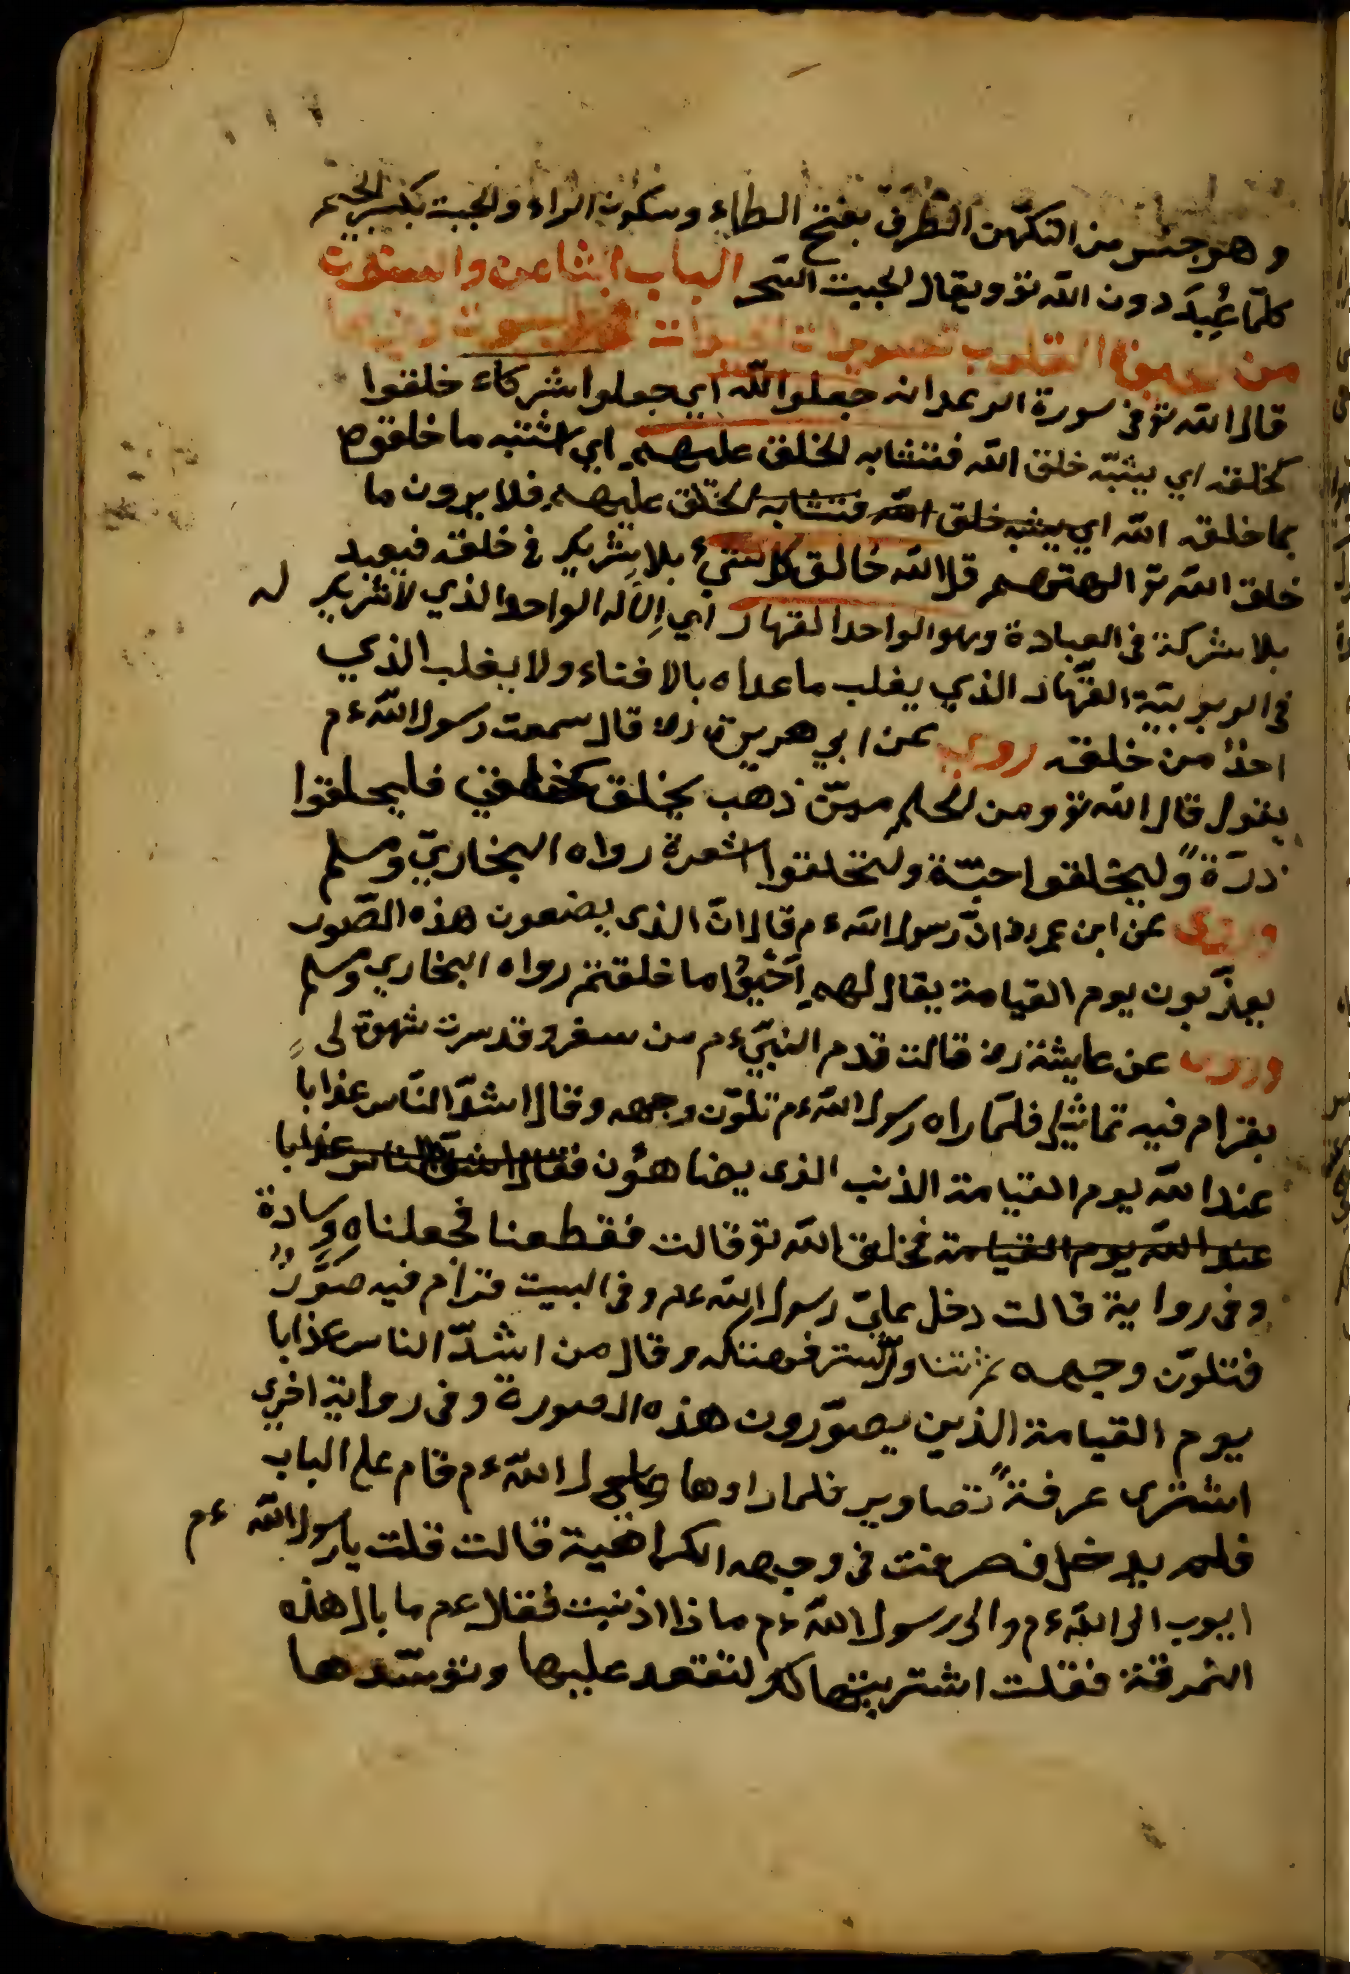 وهو جنس من التكهّن الطرق بفتح الطاء وسكون الراء والجبت بكسر الجيم
كلّما عُبِدَ دون الله تع ويقال لجبت السّحر الباب الثامن والستون
من القلوب
قال الله تع فى سورة الرعد انه جعلوا الله اي جعلوا شركاء خلقوا
كخلقه اي يشبّه خلق الله فتشابه الخلق عليهم اي اشتبه ما خلقوه
بما خلقه الله اي يشبه خلق الله فتشابه الخلق عليهم فلا يرون ما
خلق الله تع الهتهم قل الله خالق كل شيء بلا شريك فى خلقه فيعبد
بلا شركة فى العبادة وهو الواحد القهار اي الاله الواحد الذي لا شريك له
فى الربوبيّة القهّار الذي يغلب ما عداه بالافناء ولا يغلب الذي
احدٌ من خلقه روي عن ابي هريرة رض قال سمعت رسول الله ءم
يقول قال الله تع ومن اظلم ممّن ذهب يخلق كخلقي فليخلقوا
ذرّة وليخلقوا حبّة وليخلقوا شعرة رواه البخاريّ ومسلم
وروي عن ابن عمر رض انّ رسول الله ءم قال انّ الذى يضعون هذه الصّور
يعذّبون يوم القيامة يقال لهم احيوا ما خلقتم رواه البخاري ومسلم
وروي عن عايشة رض قالت قدم النبيّ ءم من سفر وقد سرت شهوة لى
بقرام فيه تماثيل فلمّا راه رسول الله ءم تلوّن وجهه وقال اشدّ الناس عذابا
عند الله يوم القيامة الذنب الذى يضاهؤن فقال اشدّ الناس عذابا
عند الله يوم القيامة بخلق الله تع قالت فقطعنا فجعلناه وسادة
وفى رواية قالت دخل عليّ رسول الله عم وفى البيت قرام فيه صُوَرٌ
فتلوّن وجهه ثم تناول السّتر فهتكه وقال من اشدّ الناس عذابا
يوم القيامة الذين يصوّرون هذه الصورة وفى رواية اخري
اشترى عرفة تصاوير فلما راوها رسول الله ءم قام على الباب
فلم يدخل فصرفت فى وجهه الكراهية قالت قلت يا رسول الله ءم
ايوب الى الله ءم والى رسول الله ءم ماذا اذنبت فقلا عم ما بال هذه
النمرقة فقلت اشتريتها لك لتقعد عليها وتوسّدها